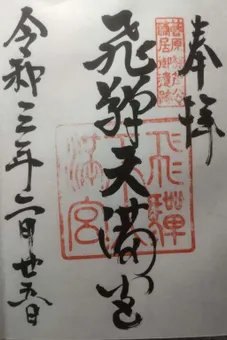 奉拝
菅原道真公
飛騨天満宮
飛騨天満宮
令和三年二月廿五日